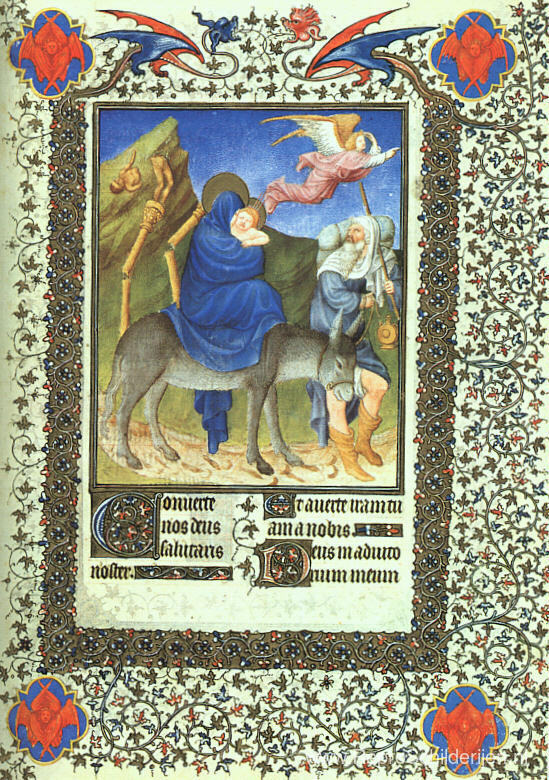 Conuerte
nos deus
salutaris
noster.
Et auerte iram tu
am a nobis.
Deus in adiuto
rium meum